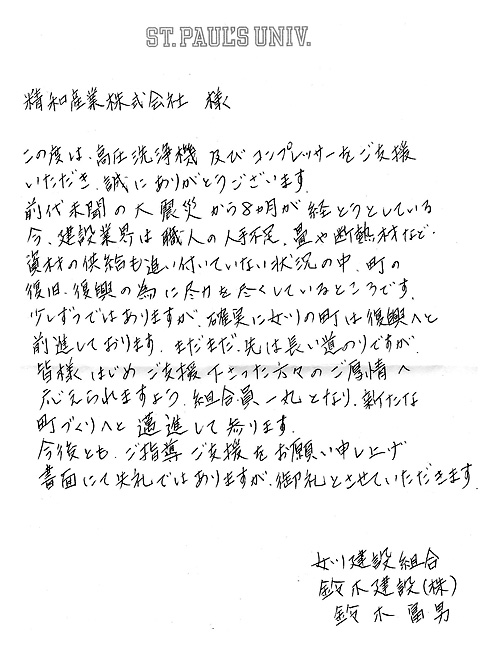 ST. PAUL'S UNIV.
精和産業株式会社 様
この度は、高圧洗浄機 及び コンプレッサーをご支援
いただき、誠に ありがとうございます。
前代未聞の大震災から8ヵ月が経とうとしている
今、建設業界は職人の人手不足、畳や断熱材など、
資材の供給も追い付いていない状況の中、町の
復旧、復興の為に尽力を尽くしているところです。
少しずつではありますが、確実に女川の町は復興へと
前進しております。まだまだ、先は長い道のりですが、
皆様はじめ ご支援下さった方々のご厚情へ
応えられますよう、組合員一丸となり、新たな
町づくりへと 邁進して参ります。
今後とも、ご指導 ご支援をお願い申し上げ
書面にて失礼ではありますが、御礼とさせていただきます。
女川建設組合
鈴木建設(株)
鈴木 富男